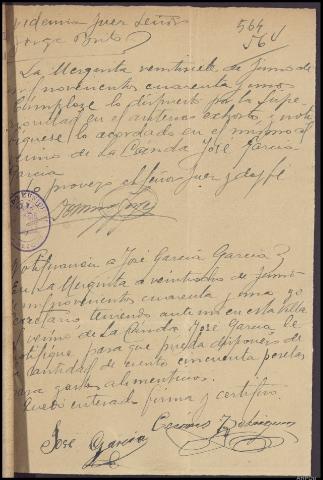 564
564
Providencia Juez Señor
Jorge
La Mezquita veintisiete de Junio de
mil novecientos cuarenta y uno
Cumplase lo dispuesto por la Supe-
rioridad en el anterior exhorto y noti-
fiquese lo acordado en el mismo al
vecino de la Canda José García
García
Lo proveyo el Señor Juez y doy fé
Notificacion a José García García
En La Mezquita a veintiocho de Junio
mil novecientos cuarenta y uno yo
Secretario teniendo ante mi en esta Villa
el vecino de La Canda José García, le
notifique para que pueda disponer de
la cantidad de ciento cincuenta pesetas
para gastos alimenticios.
Quedó enterado firma y certifico
José García